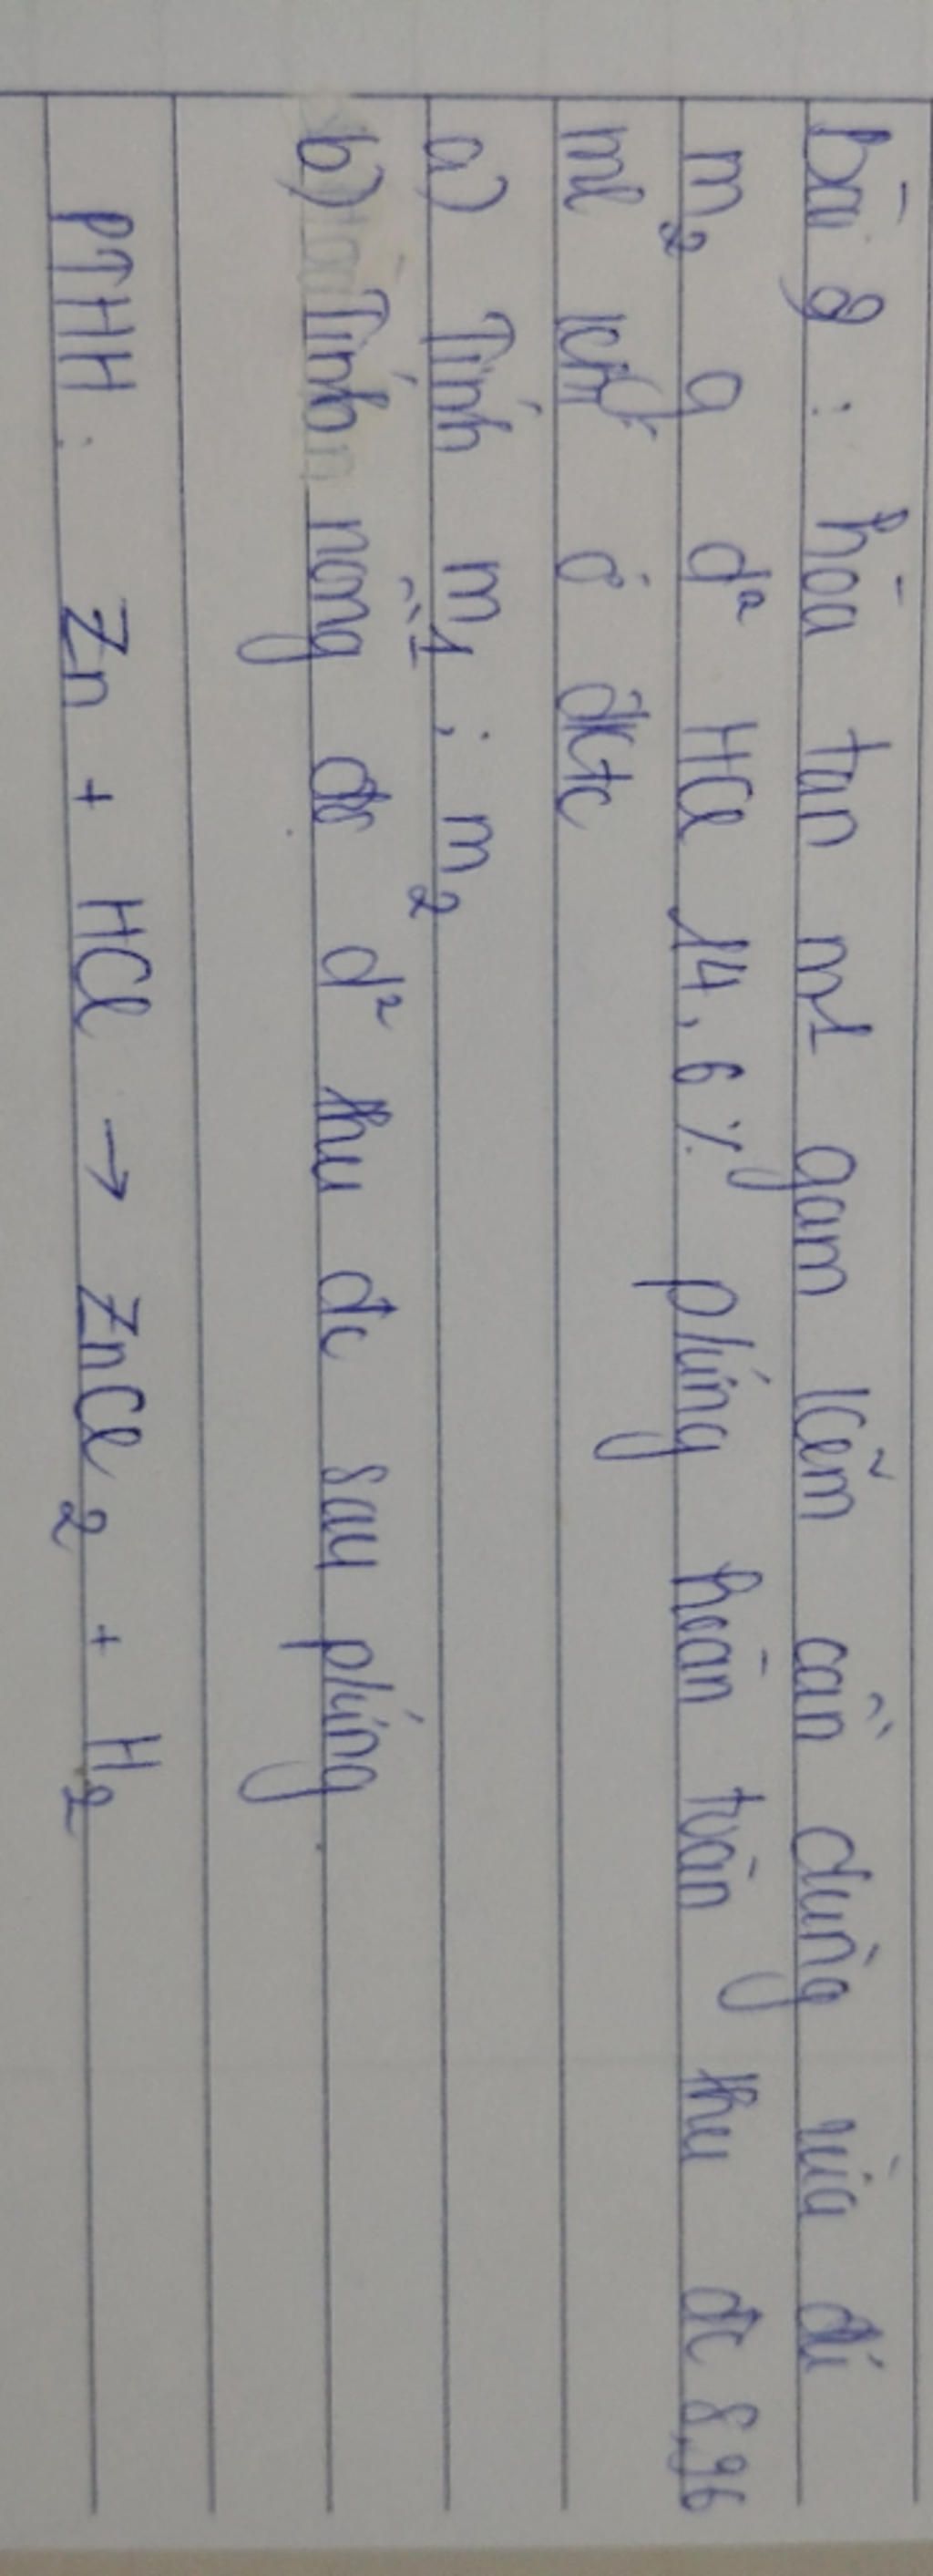 bài 8 : hòa tan m1 gam kẽm cần dùng vừa đủ
m2 g d² HCl 14,6% pứng hoàn toàn thu đc 8,96
ml khí ở đktc
a) Tính m1 ; m2
b) Tính nồng độ d² thu đc sau pứng.
PTHH : Zn + HCl → ZnCl2 + H2